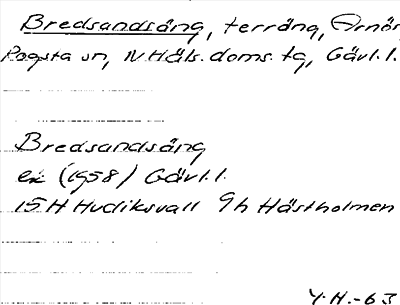 Bredsandsäng, terräng, Arnös
Rogsta sn, N.Häls.doms.tg, Gävl.l.
Bredsandsäng
ek (1958) Gävl.l.
15H Hudiksvall 9h Hästholmen
Y.H.-63